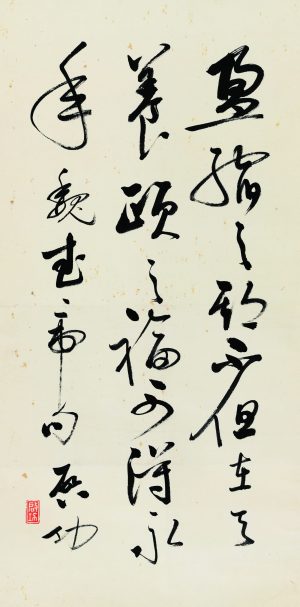 盈缩之期不但在天
养颐之福可得永
年 魏武帝句 启功
启功